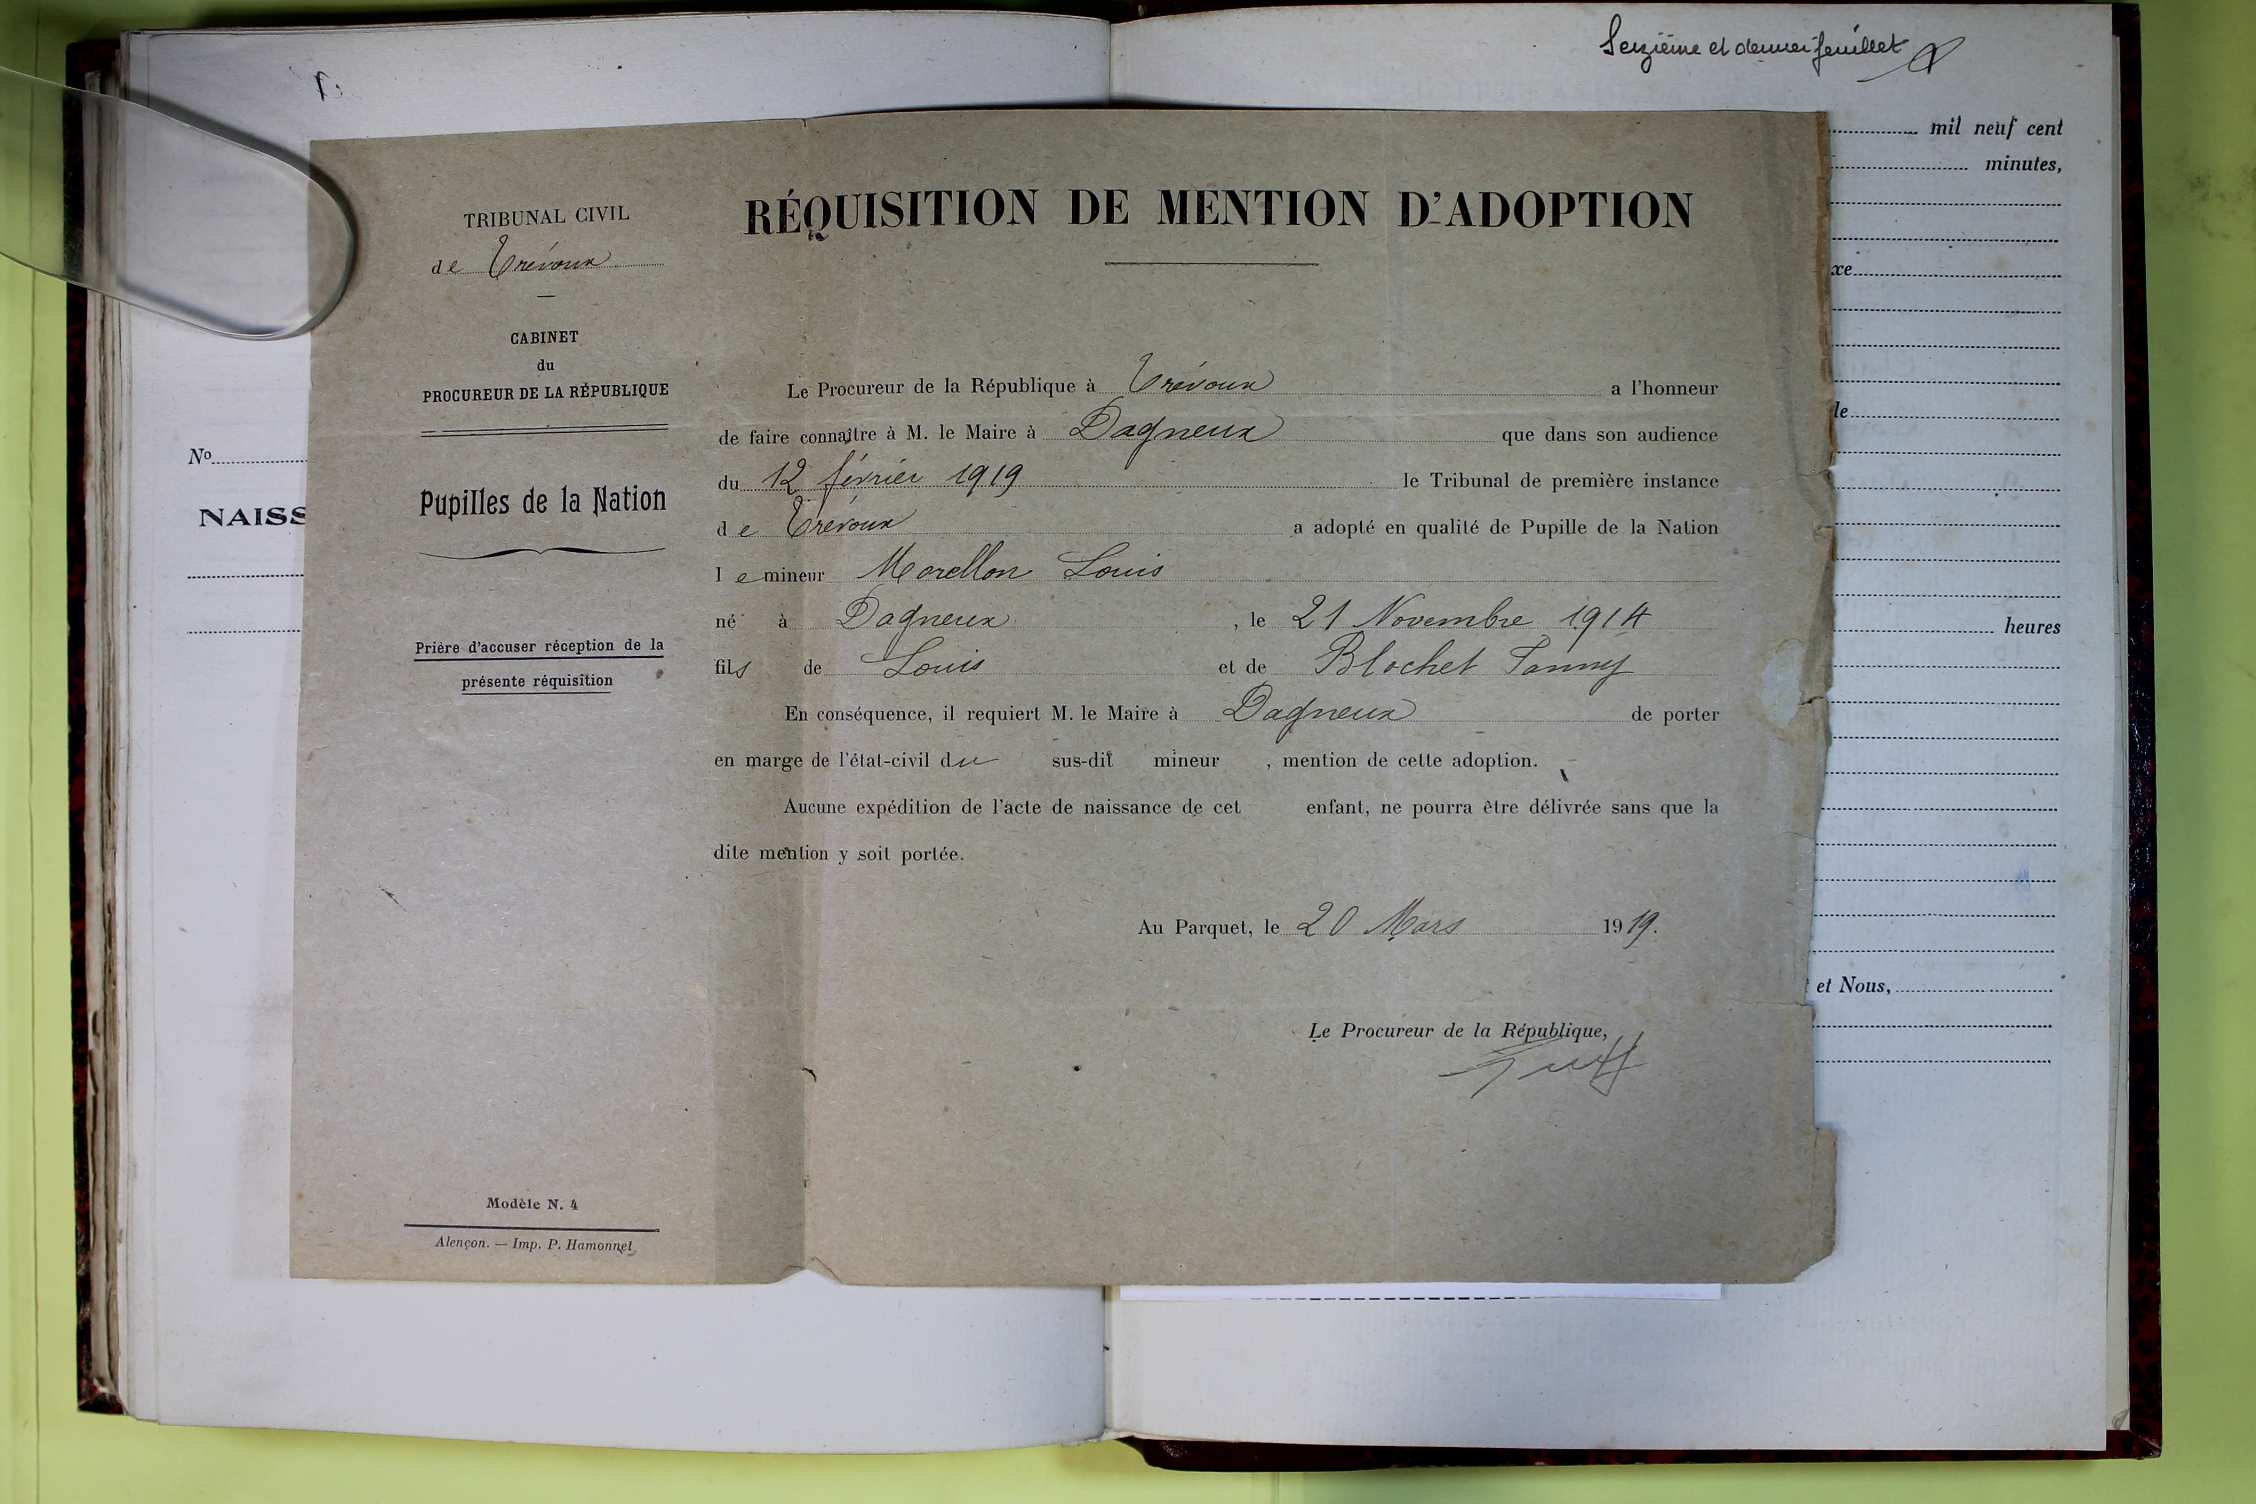 Seizième et dernier feuillet
TRIBUNAL CIVIL
de Trévoux
CABINET
du
PROCUREUR DE LA RÉPUBLIQUE
Pupilles de la Nation
Prière d'accuser réception de la
présente réquisition
Modèle N. 4
Alençon. — Imp. P. Hamonnel
RÉQUISITION DE MENTION D'ADOPTION
Le Procureur de la République à Trévoux a l'honneur
de faire connaître à M. le Maire à Dagneux que dans son audience
du 12 février 1919 le Tribunal de première instance
de Trévoux a adopté en qualité de Pupille de la Nation
le mineur Morellon Louis
né à Dagneux, le 21 Novembre 1914
fils de Louis et de Blochet Fanny
En conséquence, il requiert M. le Maire à Dagneux de porter
en marge de l'état-civil du sus-dit mineur, mention de cette adoption.
Aucune expédition de l'acte de naissance de cet enfant, ne pourra être délivrée sans que la
dite mention y soit portée.
Au Parquet, le 20 Mars 1919.
Le Procureur de la République,
No
NAISS
mil neuf cent
minutes,
xe
le
heures
et Nous,